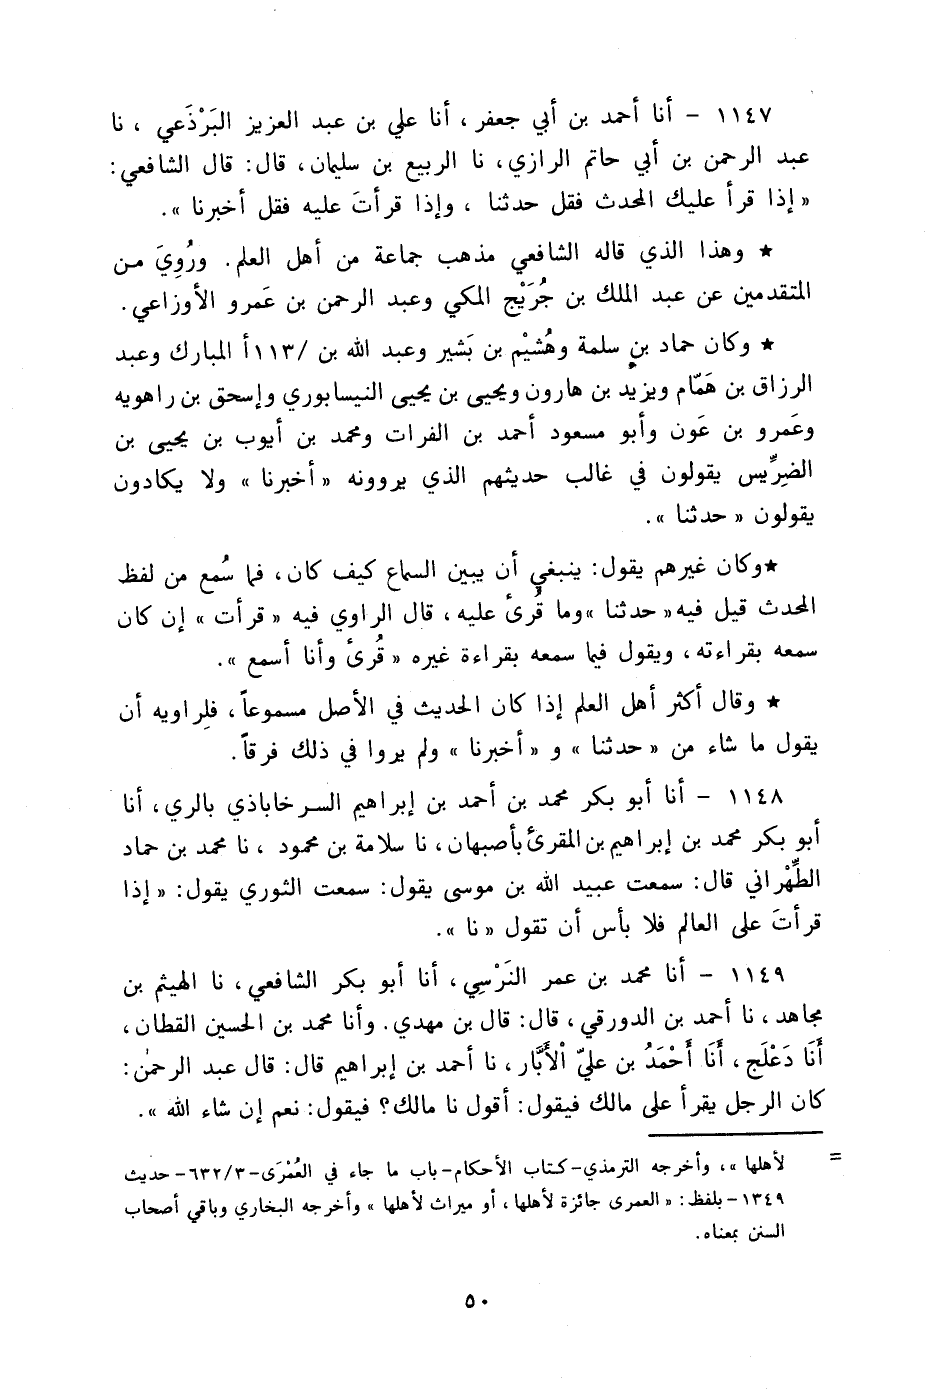 ١١٤٧ - أنا أحمد بن أبي جعفر، أنا علي بن عبد العزيز البَرْذَعي ، نا
عبد الرحمن بن أبي حاتم الرازي، نا الربيع بن سليمان، قال: قال الشافعي:
« إذا قرأ عليك المحدث فقل حدثنا ، وإذا قرأتَ عليه فقل أخبرنا ».
★ وهذا الذي قاله الشافعي مذهب جماعة من أهل العلم. ورُوِيَ من
المتقدمين عن عبد الملك بن جُرَيْج المكي وعبد الرحمن بن عَمرو الأوزاعي.
★ وكان حماد بن سلمة وهُشَيْم بن بَشير وعبد الله بن /١١٣أ المبارك وعبد
الرزاق بن هَمّام ويزيد بن هارون ويحيى بن يحيى النيسابوري وإسحق بن راهويه
وعَمرو بن عَون وأبو مسعود أحمد بن الفرات ومحمد بن أيوب بن يحيى بن
الضِرِّيس يقولون في غالب حديثهم الذي يروونه « أخبرنا » ولا يكادون
يقولون « حدثنا ».
★وكان غيرهم يقول: ينبغي أن يبين السماع كيف كان، فما سُمع من لفظ
المحدث قيل فيه« حدثنا »وما قُرئ عليه، قال الراوي فيه « قرأت » إن كان
سمعه بقراءته، ويقول فيما سمعه بقراءة غيره « قُرئ وأنا أسمع ».
★ وقال أكثر أهل العلم إذا كان الحديث في الأصل مسموعاً، فلِراويه أن
يقول ما شاء من « حدثنا » و « أخبرنا » ولم يروا في ذلك فرقاً.
١١٤٨ - أنا أبو بكر محمد بن أحمد بن إبراهيم السرخاباذي بالري، أنا
أبو بكر محمد بن إبراهيم بن المقرئ بأصبهان، نا سلامة بن محمود ، نا محمد بن حماد
الطِّهْراني قال: سمعت عبيد الله بن موسى يقول: سمعت الثوري يقول: « إذا
قرأتَ على العالم فلا بأس أن تقول « نا ».
١١٤٩ - أنا محمد بن عمر النَرْسِي، أنا أبو بكر الشافعي، نا الهيثم بن
مجاهد، نا أحمد بن الدورقي، قال: قال بن مهدي. وأنا محمد بن الحسين القطان،
أَنَا دَعْلَج، أَنَا أَحْمَدُ بن عليّ اْلأَبَّار، نا أحمد بن إبراهيم قال: قال عبد الرحمٰن:
كان الرجل يقرأ على مالك فيقول: أقول نا مالك؟ فيقول: نعم إن شاء الله ».
= لأهلها »، وأخرجه الترمذي-كتاب الأحكام-باب ما جاء في العُمْرَى-٦٣٢/٣-حديث
١٣٤٩-بلفظ: « العمرى جائزة لأهلها، أو ميراث لأهلها » وأخرجه البخاري وباقي أصحاب
السنن بمعناه.
٥٠